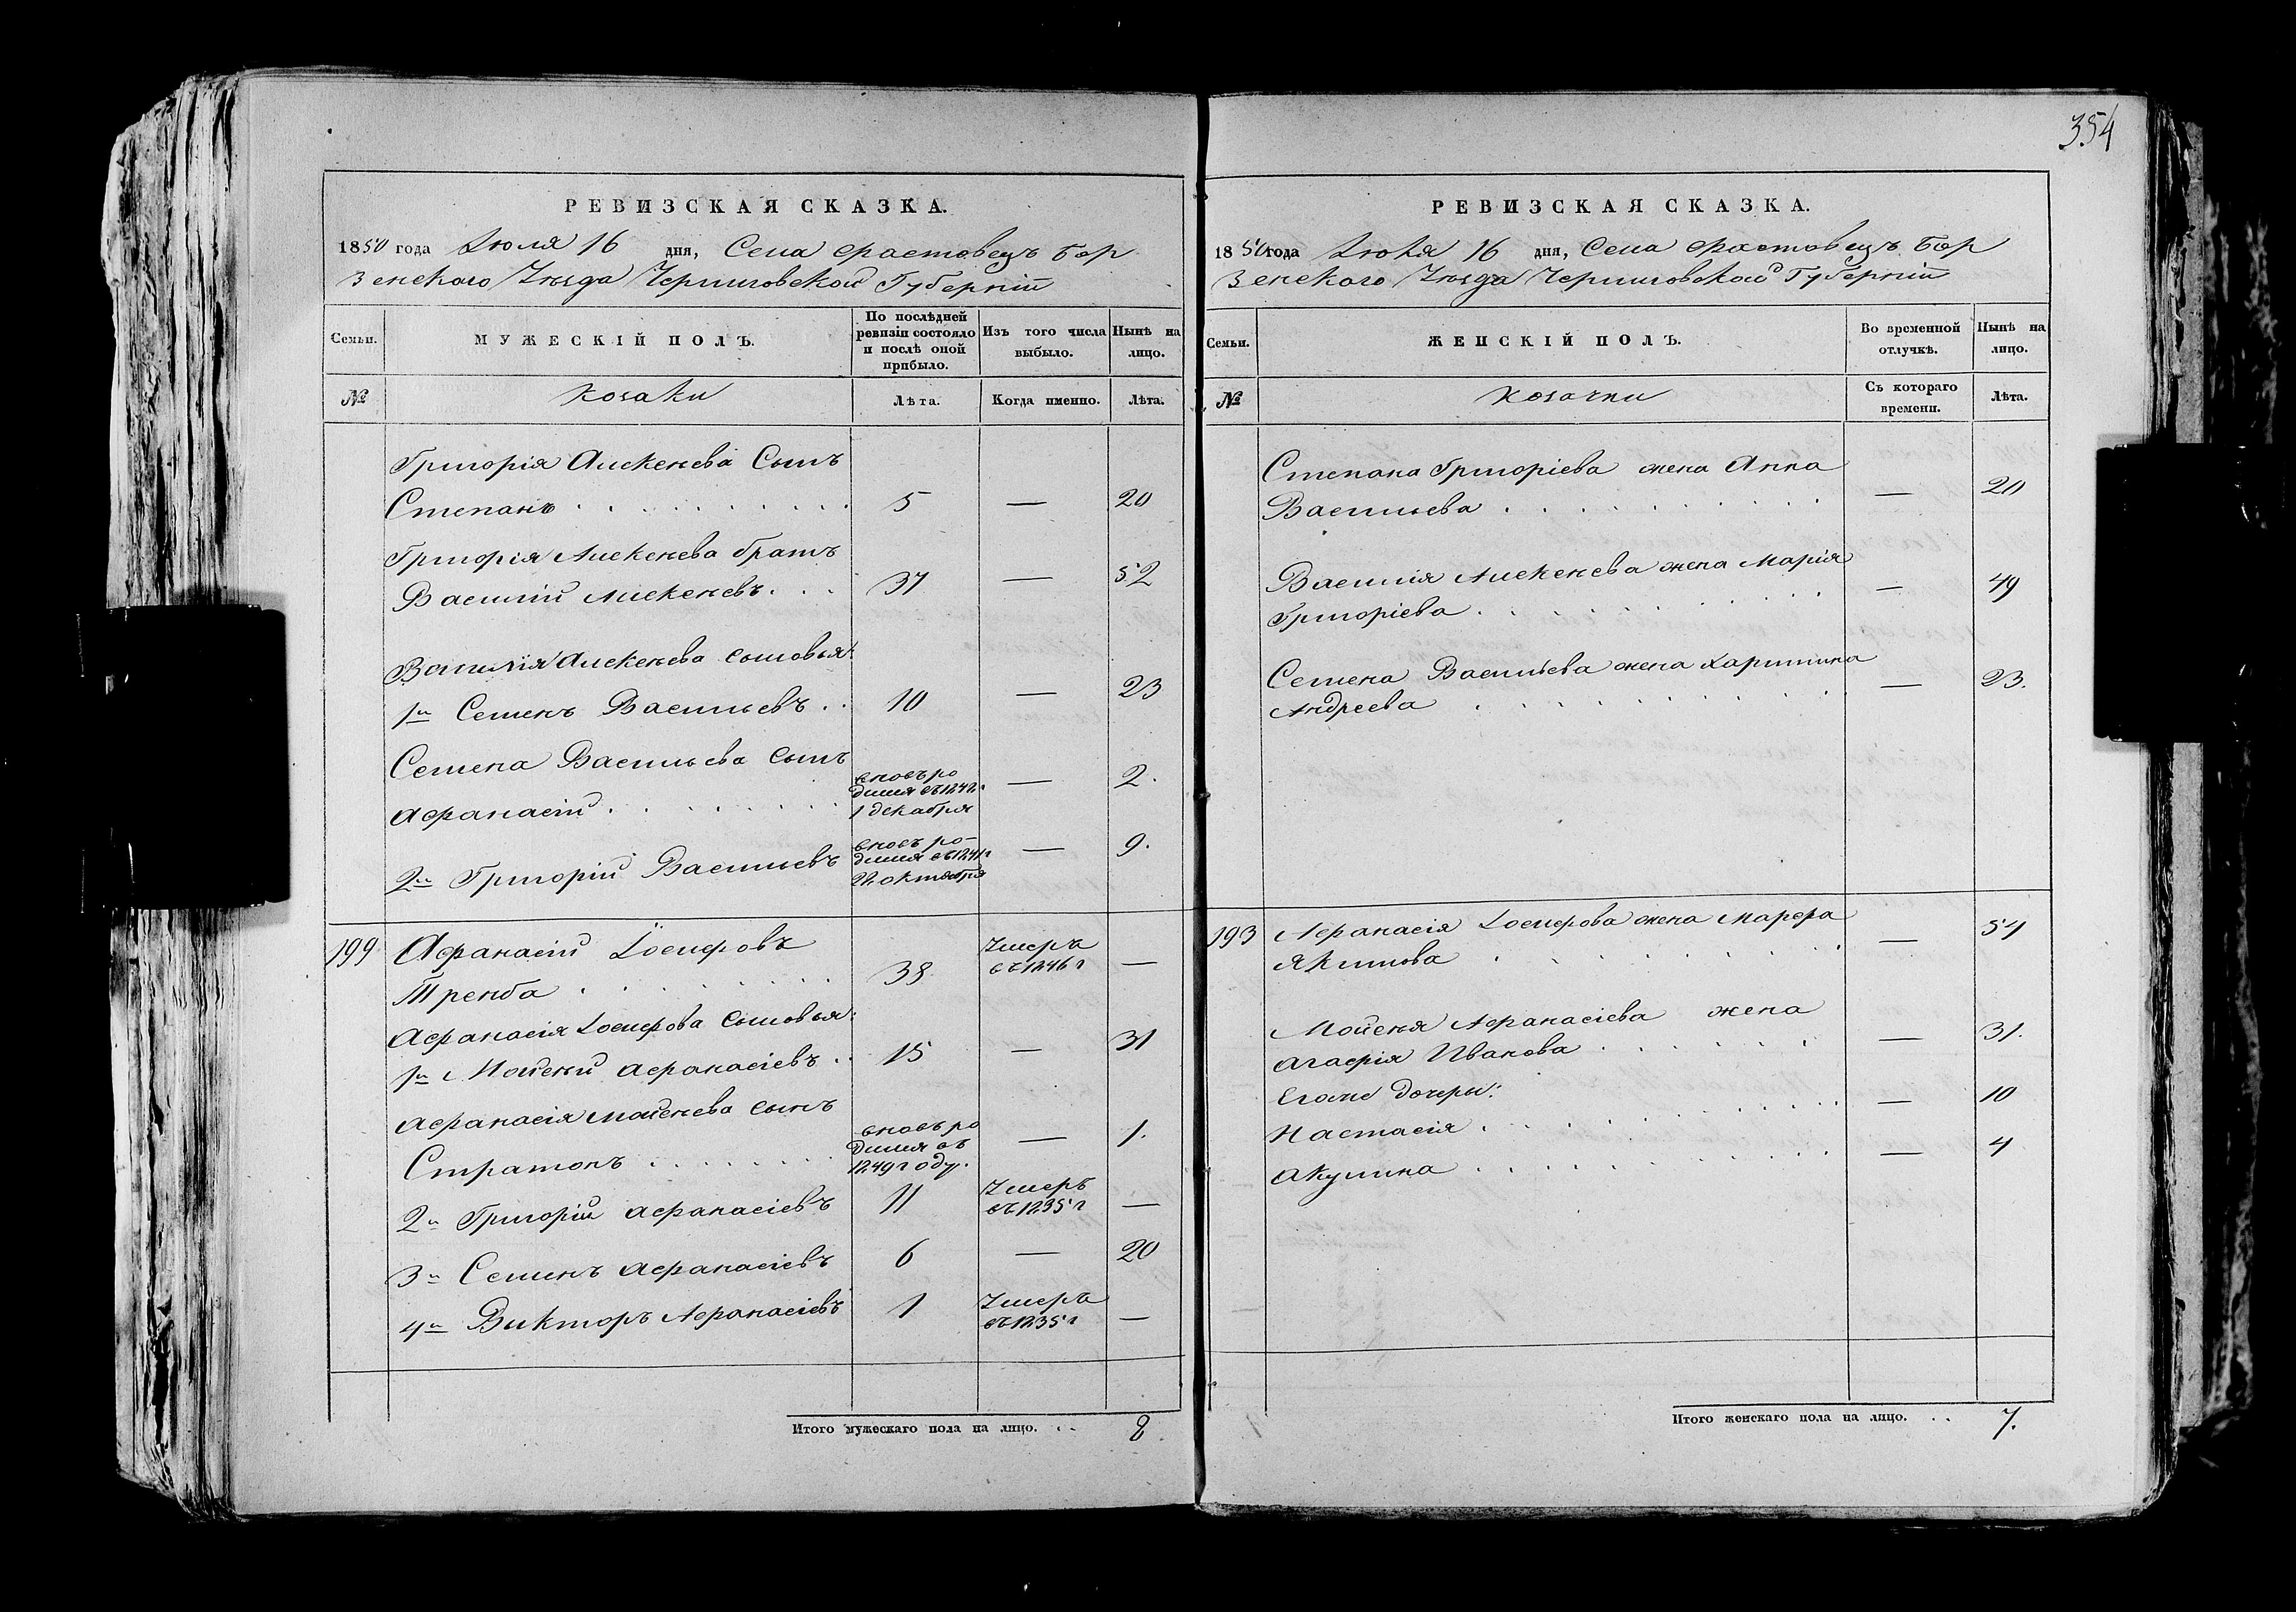 354
РЕВИЗСКАЯ СКАЗКА.
1850 года Іюля 16 дня, Села Фастовецъ Бор
зенского Уѣзда Черниговской Губерніи
Семьи.
МУЖЕСКІЙ ПОЛЪ.
По послѣдней
ревизіи состояло
и послѣ оной
прибыло.
Изъ того числа
выбыло.
Нынѣ на
лицо.
№
Козаки
Лѣта.
Когда именно.
Лѣта.
Григорія Алексѣева Сынъ
Степанъ . . . 5 — 20
Григорія Алексѣева братъ
Василій Алексѣевъ . . . 37 — 52
Василія Алексѣева сыновья:
1й Семенъ Васильевъ . . 10 — 23
Семена Васильева сынъ
Афанасій . . . вновь ро
дился въ 1848г.
1 декабря — 2.
2й Григорій Васильевъ вновь ро-
дился въ 1841г
22 октября — 9.
199 Афанасій Іосифовъ
Треиба . . . 38 Умеръ
въ 1846г —
Афанасія Іосифова сыновья:
1й Мойсей Афанасіевъ . . 15 — 31
Афанасія Мойсеева сынъ
Стратонъ . . . вновь ро
дился въ
1849 году. — 1.
2й Григорій Афанасіевъ 11 Умеръ
въ 1835г —
3й Семенъ Афанасіевъ 6 — 20
4й Викторъ Афанасіевъ 1 Умеръ
въ 1835г —
Итого мужескаго пола на лицо. . . 8
РЕВИЗСКАЯ СКАЗКА.
1850 года Іюля 16 дня, Села Фастовецъ Бор
зенского Уѣзда Черниговской Губерніи
Семьи.
ЖЕНСКІЙ ПОЛЪ.
Во временной
отлучкѣ.
Нынѣ на
лицо.
№
Козачки
Съ котораго
времени.
Лѣта.
Степана Григоріева жена Анна
Васильева . . . — 20
Василія Алексѣева жена Марія
Григоріева . . . — 49
Семена Васильева жена Харитина
Андреева . . . — 23.
193 Афанасія Іосифова жена Марфа
Якимова . . . — 54
Мойсея Афанасіева жена
Агафія Иванова . . . — 31.
Егоже дочеры:
Настасія . . . — 10
Акулина . . . — 4
Итого женскаго пола на лицо. . . 7.